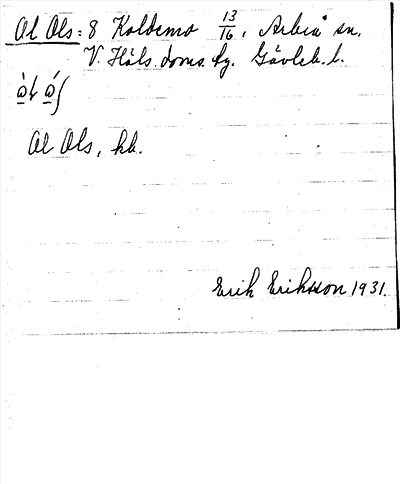 Al Ols: 8 Koldemo 13/16, Arbrå sn.
V. Häls. doms. fg. Gävleb. l.
Al Ols, hb.
Erik Eriksson 1931.